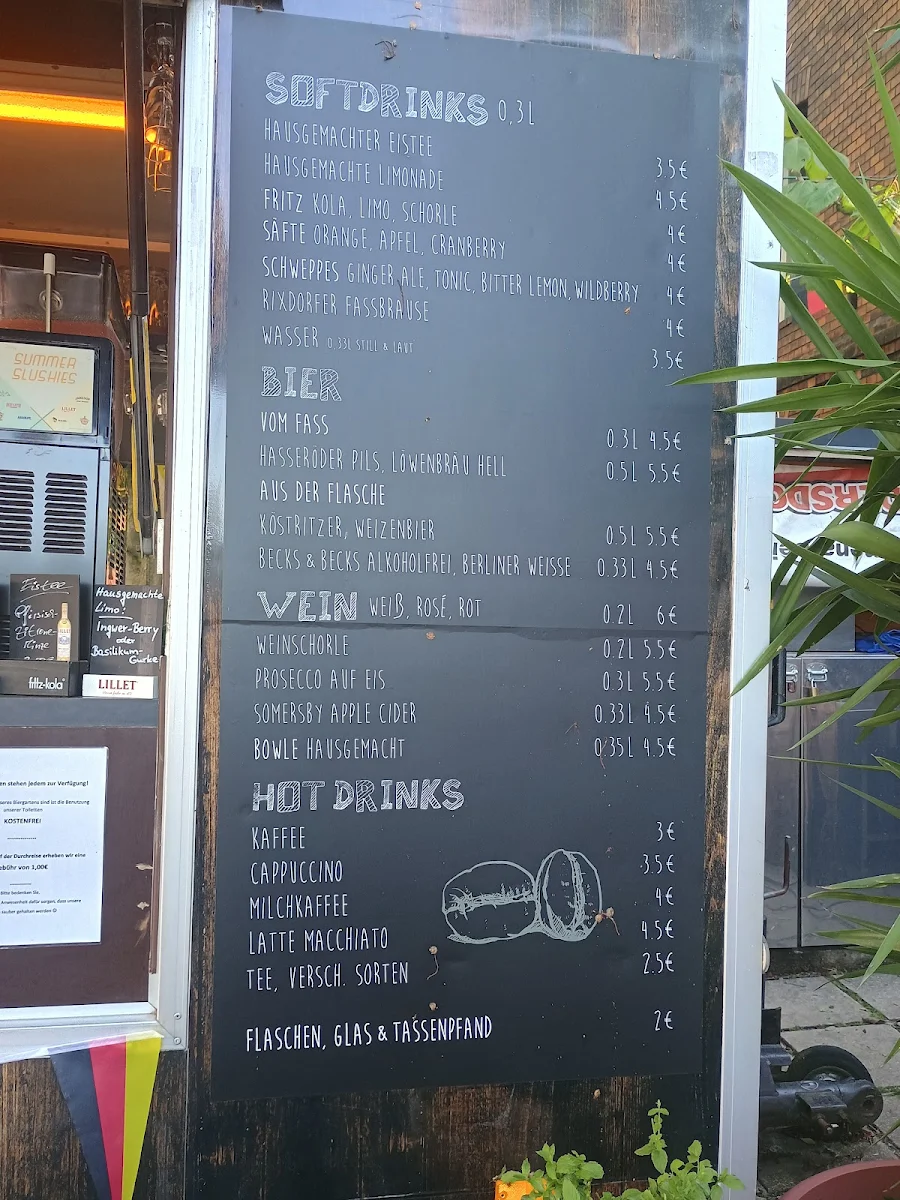 SOFTDRINKS 0,3L
HAUSGEMACHTER EISTEE 3.5€
HAUSGEMACHTE LIMONADE 4.5€
FRITZ KOLA, LIMO, SCHORLE 4€
SÄFTE ORANGE, APFEL, CRANBERRY 4€
SCHWEPPES GINGER ALE, TONIC, BITTER LEMON, WILDBERRY 4€
RIXDORFER FASSBRAUSE 4€
WASSER 0,33L STILL & LAUT 3.5€
BIER
VOM FASS 0.3L 4.5€
HASSERÖDER PILS, LÖWENBRÄU HELL 0.5L 5.5€
AUS DER FLASCHE
KÖSTRITZER, WEIZENBIER 0.5L 5.5€
BECKS & BECKS ALKOHOLFREI, BERLINER WEISSE 0.33L 4.5€
WEIN WEIß, ROSÉ, ROT 0.2L 6€
WEINSCHORLE 0.2L 5.5€
PROSECCO AUF EIS 0.3L 5.5€
SOMERSBY APPLE CIDER 0.33L 4.5€
BOWLE HAUSGEMACHT 0.35L 4.5€
HOT DRINKS
KAFFEE 3€
CAPPUCCINO 3.5€
MILCHKAFFEE 4€
LATTE MACCHIATO 4.5€
TEE, VERSCH. SORTEN 2.5€
FLASCHEN, GLAS & TASSENPFAND 2€
SUMMER
SLUSHIES
LILLET
Eistee
Pfirsich-
Zitrone-
Hausgemachte
Limo:
Ingwer-Berry
oder
Basilikum-
Gurke
fritz-kola
LILLET
en stehen jedem zur Verfügung!
eres Biergartens sind ist die Benutzung
unserer Toiletten
KOSTENFREI
f der Durchreise erheben wir eine
ebühr von 1,00€
Bitte bedenken Sie,
sauber gehalten werden ☺